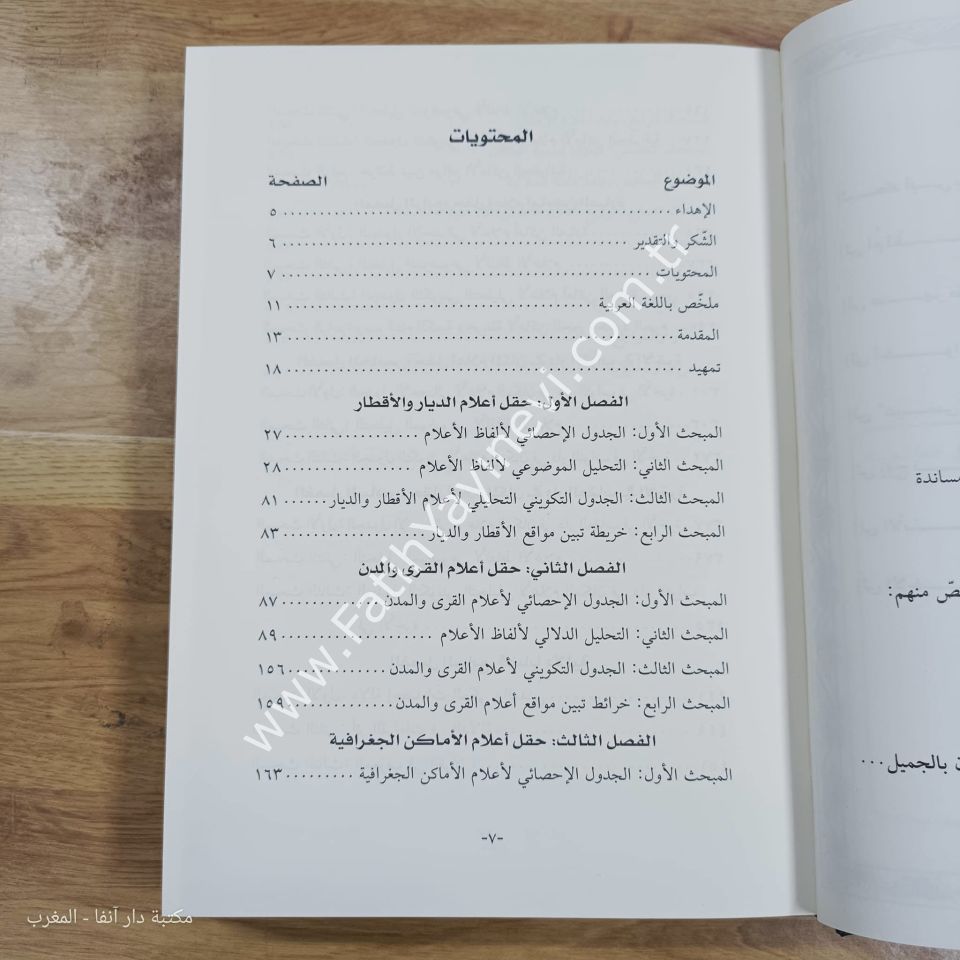 المحتويات
الموضوع الصفحة
الإهداء ٥
الشّكر والتقدير ٦
المحتويات ٧
ملخّص باللغة العربية ١١
المقدمة ١٣
تمهيد ١٨
الفصل الأول: حقل أعلام الديار والأقطار
المبحث الأول: الجدول الإحصائي لألفاظ الأعلام ٢٧
المبحث الثاني: التحليل الموضوعي لألفاظ الأعلام ٢٨
المبحث الثالث: الجدول التكويني التحليلي لأعلام الأقطار والديار ٨١
المبحث الرابع: خريطة تبين مواقع الأقطار والديار ٨٣
الفصل الثاني: حقل أعلام القرى والمدن
المبحث الأول: الجدول الإحصائي لأعلام القرى والمدن ٨٧
المبحث الثاني: التحليل الدلالي لألفاظ الأعلام ٨٩
المبحث الثالث: الجدول التكويني لأعلام القرى والمدن ١٥٦
المبحث الرابع: خرائط تبين مواقع أعلام القرى والمدن ١٥٩
الفصل الثالث: حقل أعلام الأماكن الجغرافية
المبحث الأول: الجدول الإحصائي لأعلام الأماكن الجغرافية ١٦٣
-٧-
مساندة
منهم:
بالجميل...
www.FatihYayinevi.com.tr
مكتبة دار آنفا - المغرب